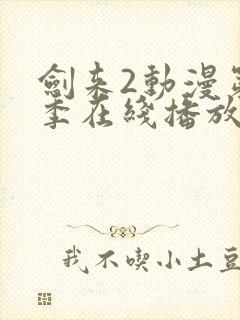 劍来2動漫第
季在綫播放
我不喫小土豆